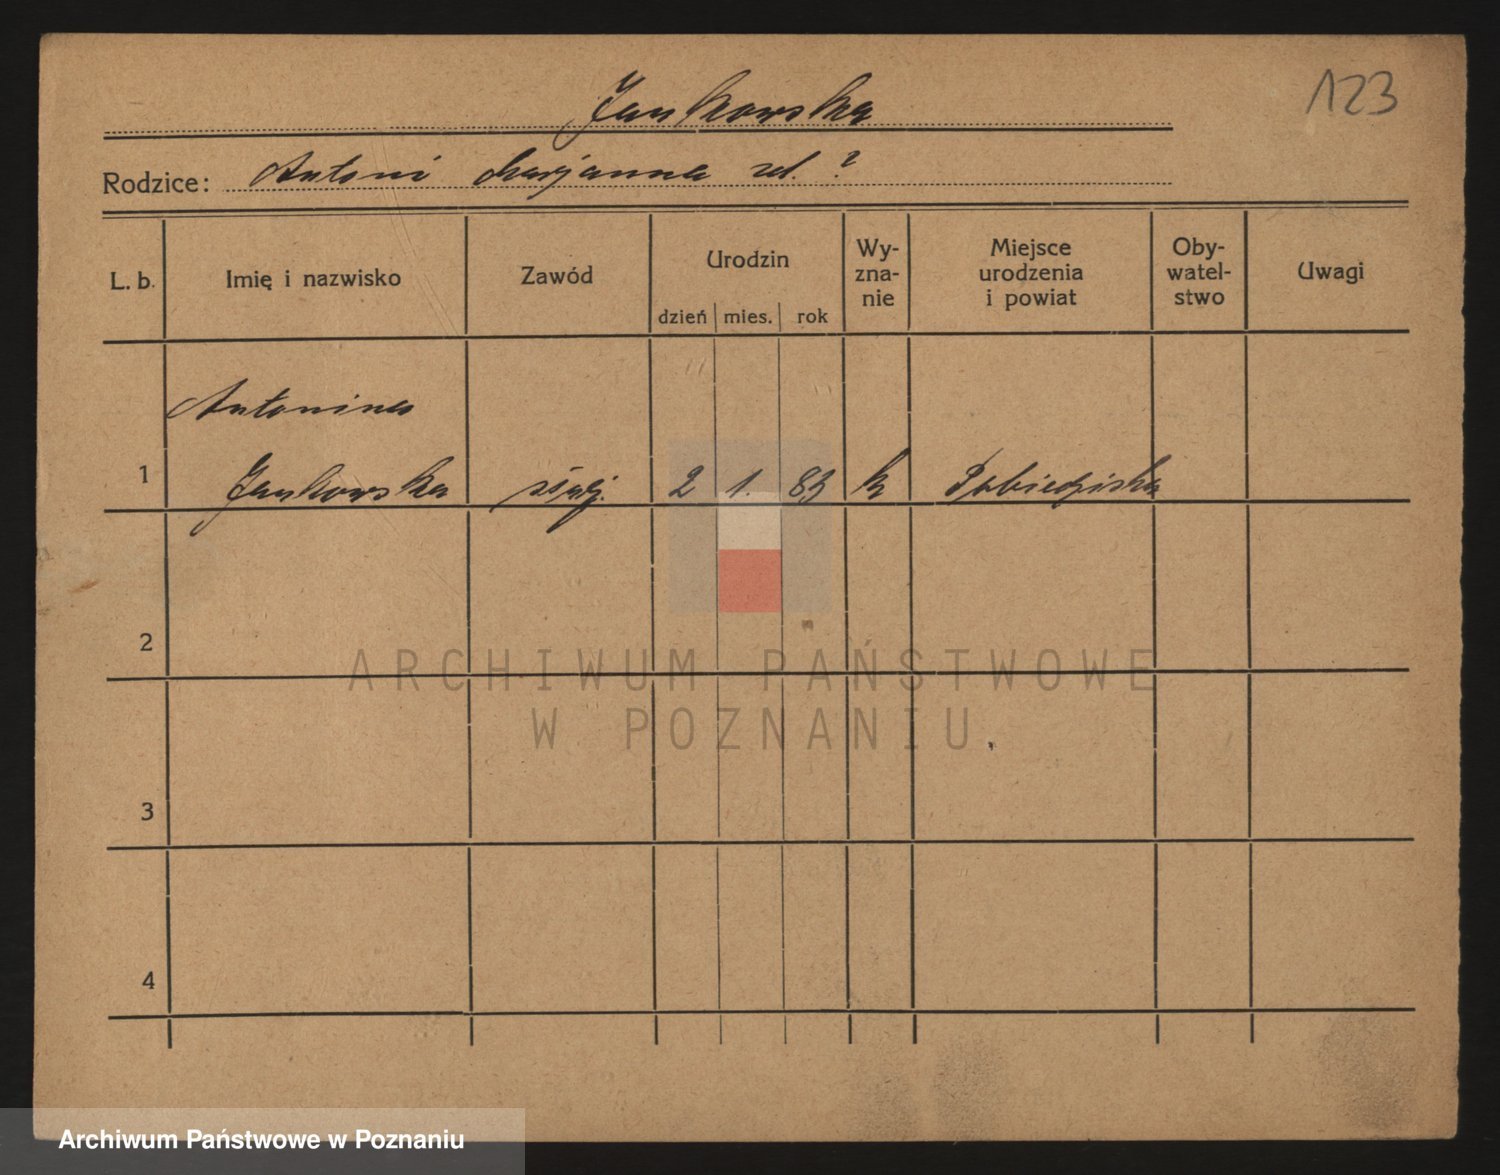 Jankowska
123
Rodzice: Antoni Marjanna zd. ?
L. b. Imię i nazwisko Zawód Urodzin dzień mies. rok Wy-zna-nie Miejsce urodzenia i powiat Oby-watel-stwo Uwagi
Antonina
1 Jankowska służ. 2 1. 83 k Pobiedziska
2
3
4
ARCHIWUM PAŃSTWOWE
W POZNANIU
Archiwum Państwowe w Poznaniu